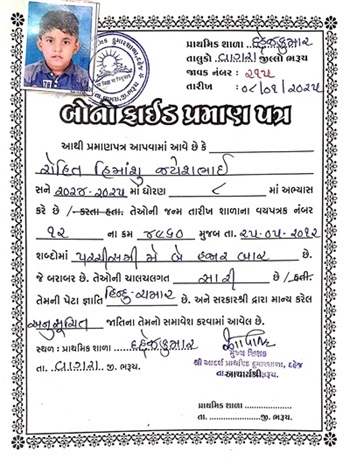 પ્રાથમિક શાળા દહેજકુમાર
તાલુકો વાગરા જીલ્લો ભરૂચ
જાવક નંબર : ૨૧૫
તારીખ : ૦૮/૦૧/૨૦૨૫
બોનાફાઈડ પ્રમાણ પત્ર
આથી પ્રમાણપત્ર આપવામાં આવે છે કે
રોહિત હિમાંશુ જયેશભાઈ
સને ૨૦૨૪-૨૦૨૫ માં ધોરણ ૮ માં અભ્યાસ
કરે છે / કરતા હતા. તેઓની જન્મ તારીખ શાળાના વયપત્રક નંબર
૧૨ ના ક્રમ ૪૮૬૦ મુજબ તા. ૨૫-૦૫-૨૦૧૨
શબ્દોમાં પચ્ચીસમી મે બે હજાર બાર છે.
જે બરાબર છે. તેઓની ચાલચલગત સારી છે / હતી.
તેમની પેટા જ્ઞાતિ હિન્દુ ચમાર છે. અને સરકારશ્રી દ્વારા માન્ય કરેલ
અનુસુચિત જાતિના તેમનો સમાવેશ કરવામાં આવેલ છે.
સ્થળ : પ્રાથમિક શાળા દહેજકુમાર
તા. વાગરા જી. ભરૂચ.
મુખ્ય શિક્ષક
શ્રી આદર્શ પ્રાથમિક કુમારશાળા, દહેજ
આચાર્યશ્રી
પ્રાથમિક શાળા
તા. જી. ભરૂચ.